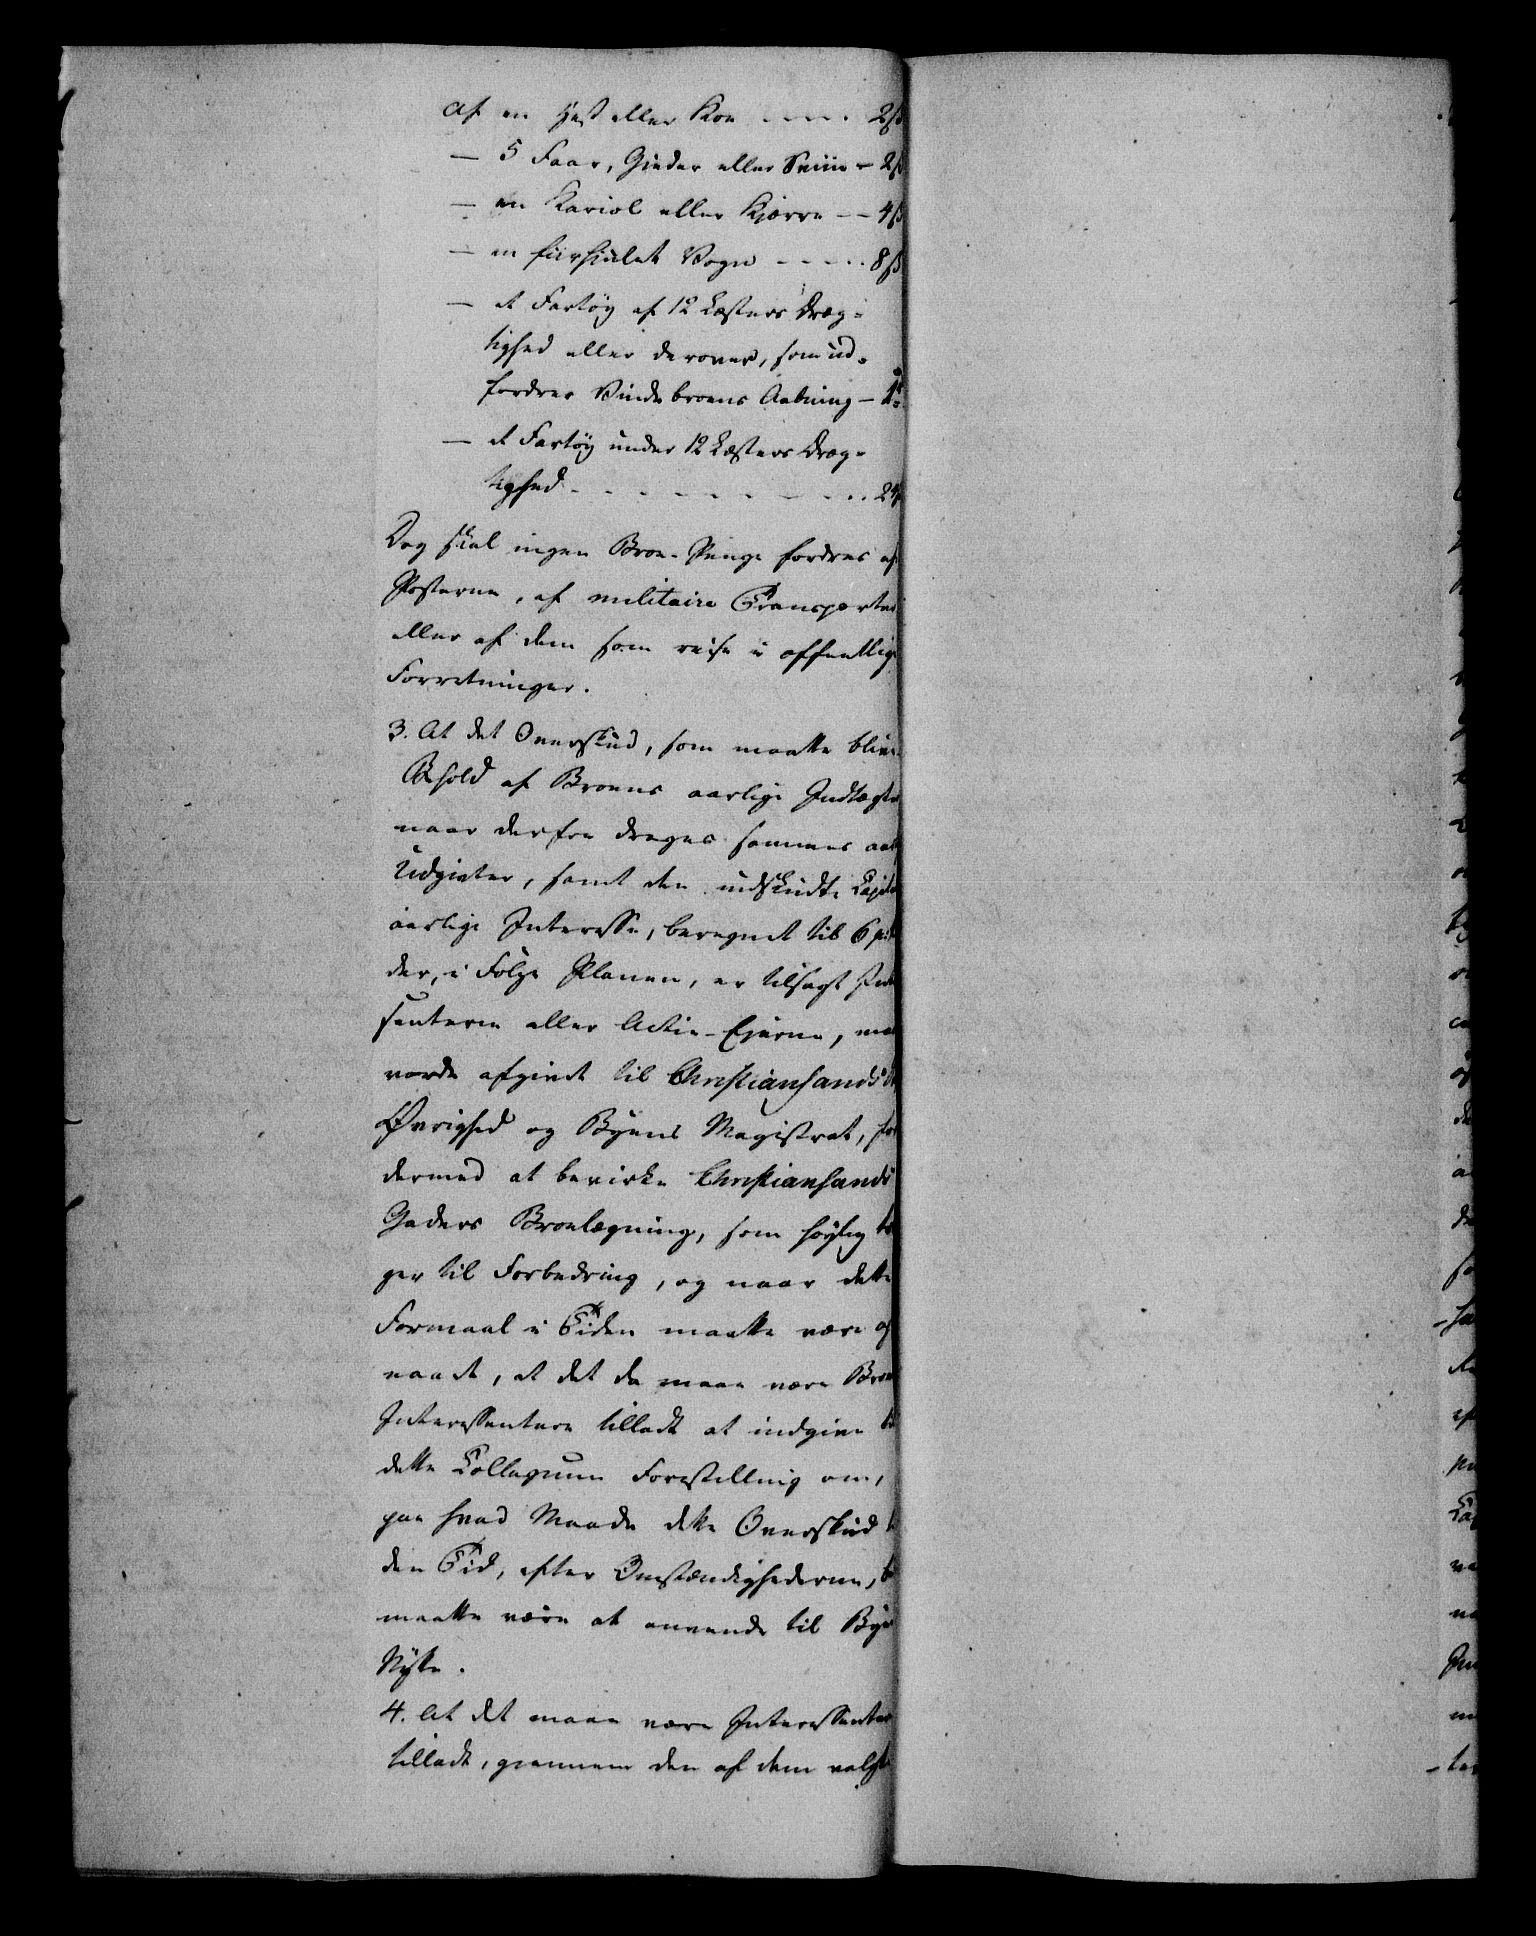 af en Hest eller Koe - - - - 2ß
— 5 Faar, Gieder eller Sviin - 2ß
— en Kariol eller Kjærre - - 4ß
— en fiirhiulet Vogn - - - - - 8ß
— et Fartøy af 12 Læsters Dræg-
tighed eller derover, som ud-
fordrer Vindebroens Aabning -
— et Fartøy under 12 Læsters Dræg-
tighed - - - - - - - - - 24ß
Dog skal ingen Broe-Penge fordres af
Posterne, af militaire Transporter
eller af dem som reise i offentlige
Forretninger.
3. At det Overskud, som maatte blive
Behold af Broens aarlige Indtægter
naar derfra drages sammes
Udgivter, samt den indskudte
aarlige Interesse, beregnet til 6
der, i Følge Planen, er tilsagt
senterne eller Actie-Ejerne, maa
vorde afgivet til Christiansands
Øvrighed og Byens Magistrat, for
dermed at bevirke Christiansands
Gaders Broelægning, som høylig
ger til Forbedring, og naar dette
Formaal i Tiden maatte være
naaet, at det da maae være Broe
Interessentere tilladt at indgive
dette Collegium Forestilling om,
paa hvad Maade dette Overskud
den Tid, efter Omstændighederne,
maatte være at anvende til Byens
Nytte.
4. At det maae være Interessenterne
tilladt, gjennem den af dem valgte